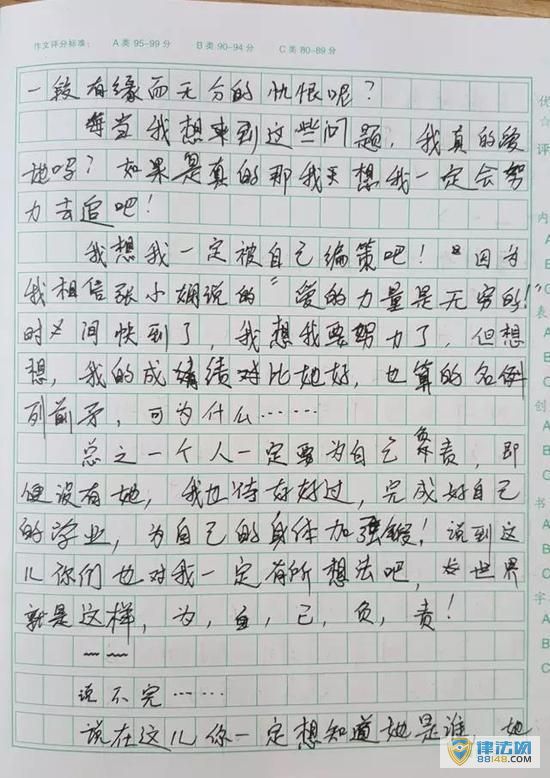 作文评分标准： A类 95-99分 B类 90-94分 C类 80-89分
一段有缘而无分的仇恨呢？
每当我想来到这些问题，我真的爱
她吗？如果是真的那我天想我一定会努
力去追吧！
我想我一定被自己编策吧！“因为
我相信张小娴说的“爱的力量是无穷的！”
时间快到了，我想我要努力了，但想
想，我的成绩对比她好，也算的名例
列前矛，可为什么……
总之一个人一定要为自己负责，即
便没有她，我也待好好过，完成好自己
的学业，为自己的身体加强锻！说到这
儿你们也对我一定有所想法吧，世界
就是这样，为，自，己，负，责！
~~
说不完……
说在这儿你一定想知道她是谁，她
优
☆
评
内
A
B
C
表
A
B
C
创
A
B
C
书
字
A
B
C
律法网
88148.com